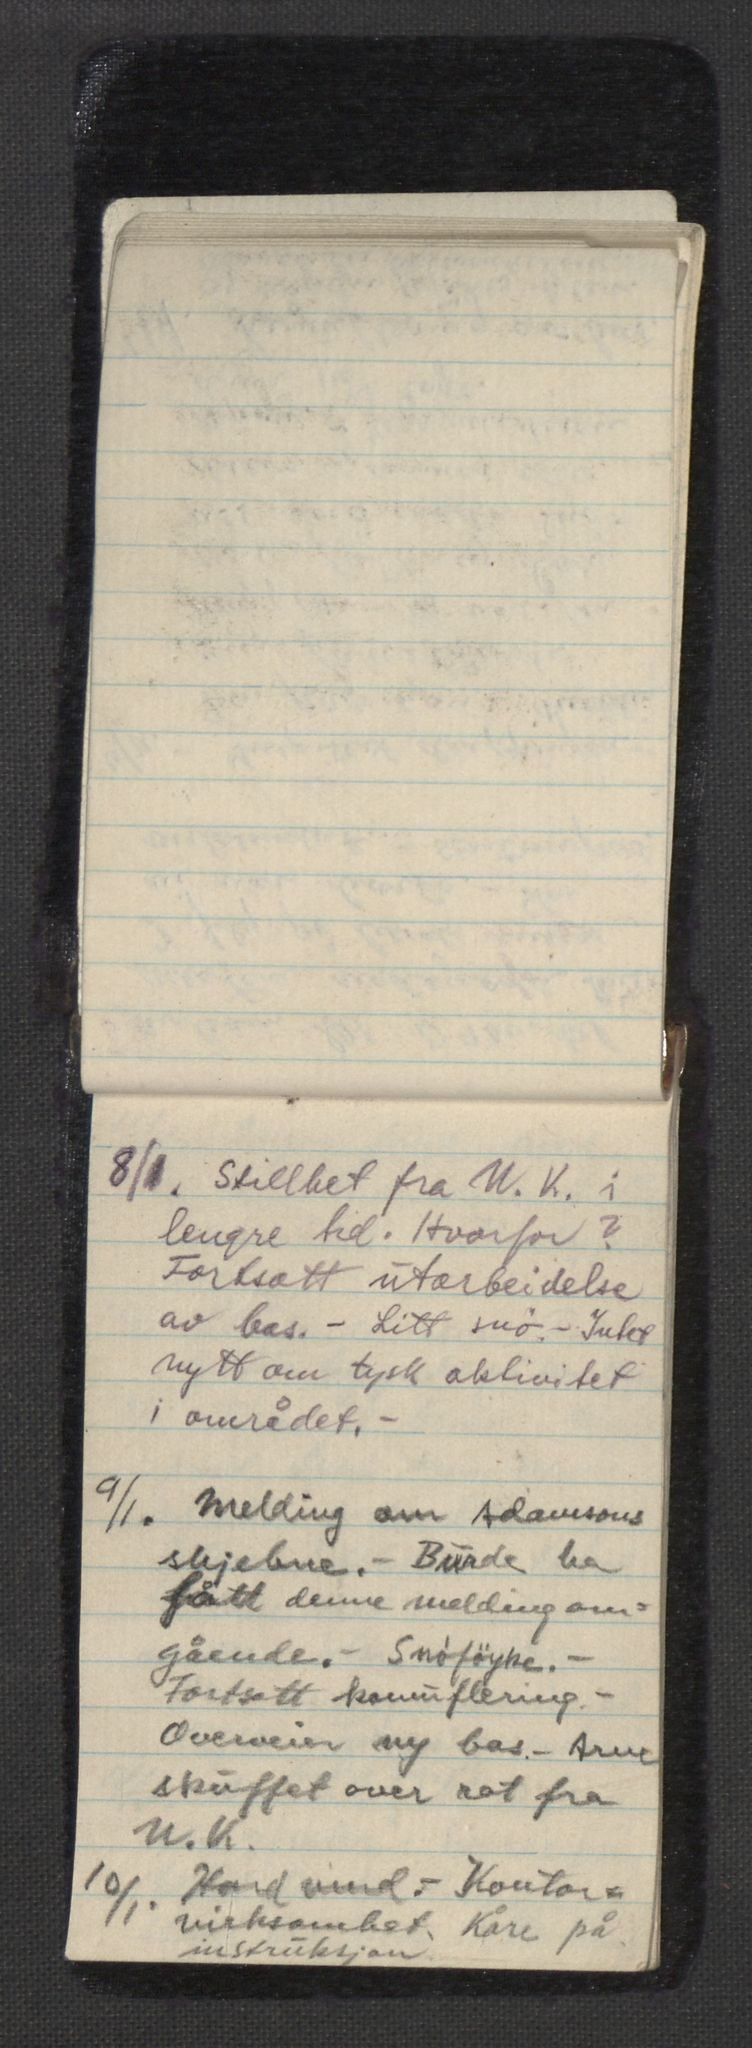 8/1. Stillhet fra U.K. i
lengre tid. Hvorfor?
Fortsatt utarbeidelse
av bas. - Litt snö. - Intet
nytt om tysk aktivitet
i området. -
9/1. Melding om Adamsons
skjebne. - Burde ha
fått denne melding om=
gående. - Snöföyke. -
Fortsatt kamuflering. -
Overveier ny bas. - Arne
skuffet over rot fra
U.K.
10/1. Hard vind. - Kontor=
virksomhet. Kåre på
instruksjon